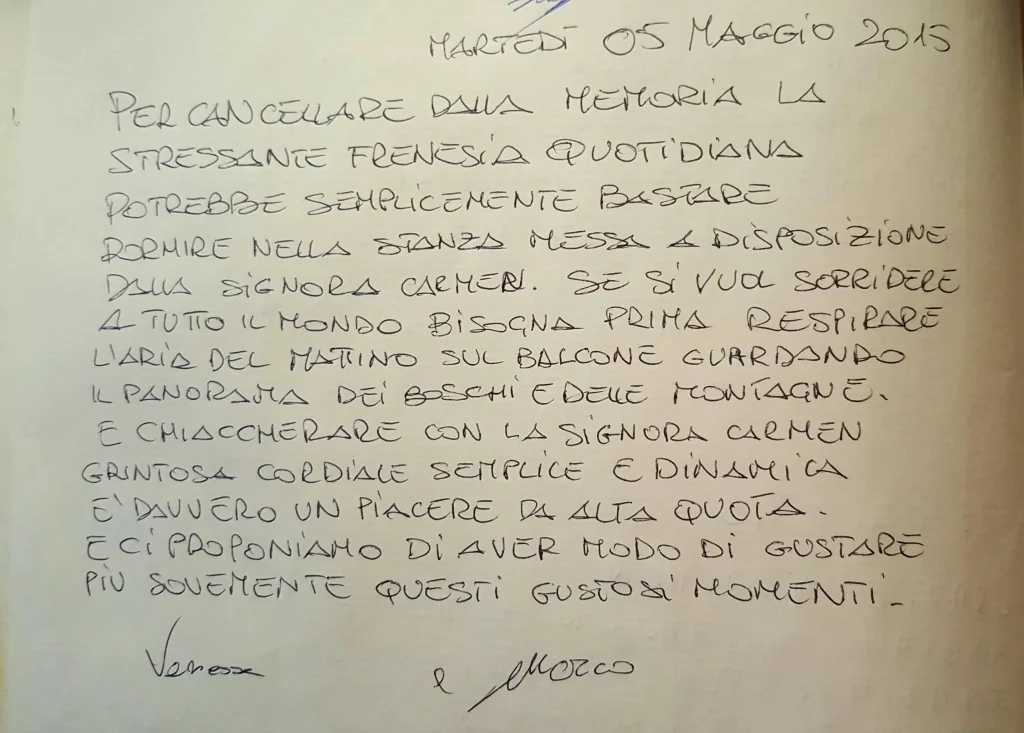 MARTEDÌ 05 MAGGIO 2015
PER CANCELLARE DALLA MEMORIA LA
STRESSANTE FRENESIA QUOTIDIANA
POTREBBE SEMPLICEMENTE BASTARE
DORMIRE NELLA STANZA MESSA A DISPOSIZIONE
DALLA SIGNORA CARMEN. SE SI VUOL SORRIDERE
A TUTTO IL MONDO BISOGNA PRIMA RESPIRARE
L'ARIA DEL MATTINO SUL BALCONE GUARDANDO
IL PANORAMA DEI BOSCHI E DELLE MONTAGNE.
E CHIACCHERARE CON LA SIGNORA CARMEN
GRINTOSA CORDIALE SEMPLICE E DINAMICA
E' DAVVERO UN PIACERE DA ALTA QUOTA.
E CI PROPONIAMO DI AVER MODO DI GUSTARE
PIÙ SOVEMENTE QUESTI GUSTOSI MOMENTI.
Vanessa e Marco